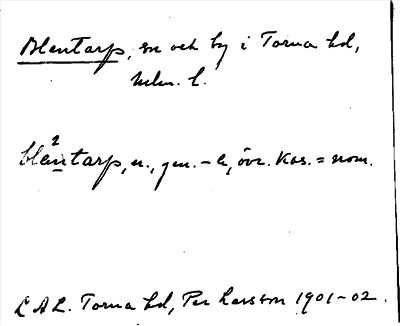 Blentarp, sn och by i Torna hd,
Mlm. l.
ble²ntarp, n., gen. -s, övr. kas. = nom.
LAL. Torna hd, Per Larsson 1901-02.